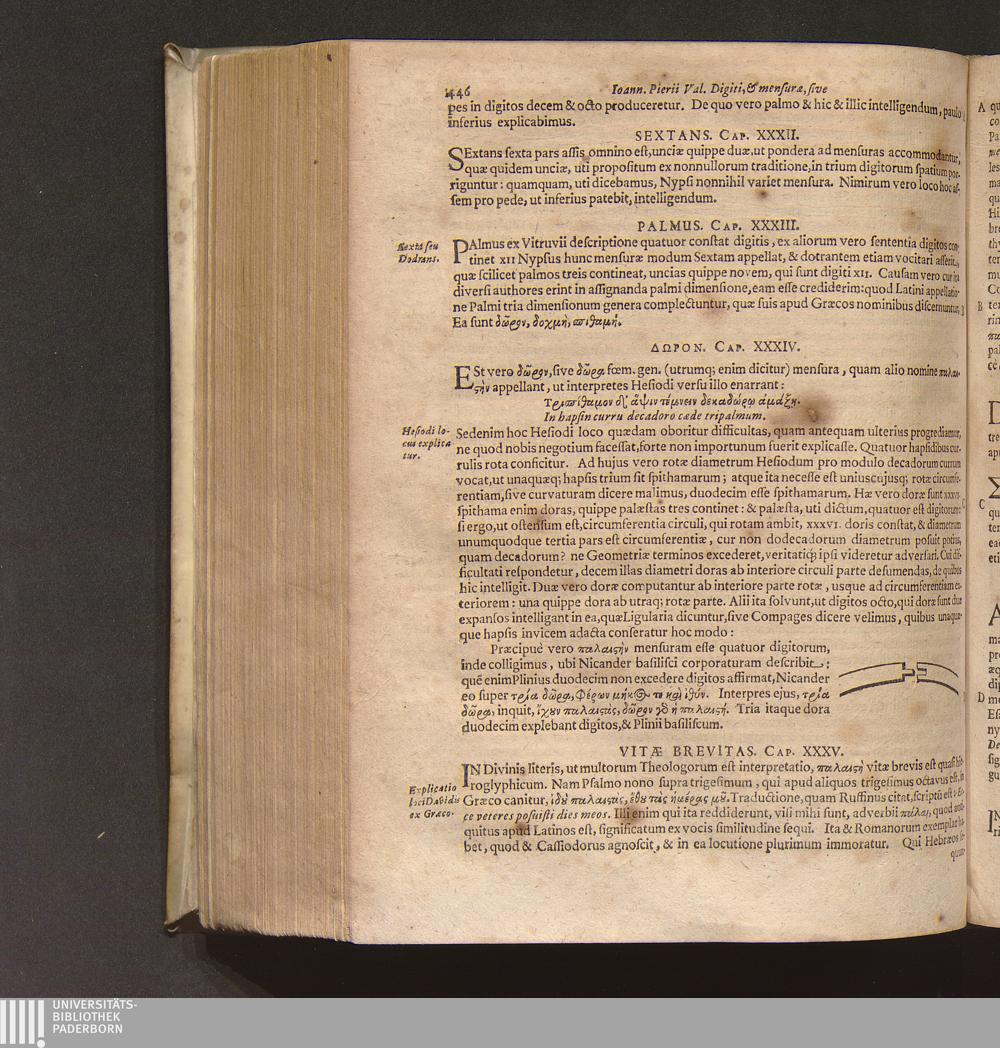 446 Ioann. Pierii Val. Digiti, & mensuræ, sive
pes in digitos decem & octo produceretur. De quo vero palmo & hic & illic intelligendum, paulo
inferius explicabimus.
SEXTANS. CAP. XXXII.
SExtans sexta pars assis omnino est, unciæ quippe duæ, ut pondera ad mensuras accommodantur,
quæ quidem unciæ, uti propositum ex nonnullorum traditione, in trium digitorum spatium por-
riguntur: quamquam, uti dicebamus, Nypsi nonnihil variet mensura. Nimirum vero loco hoc as-
sem pro pede, ut inferius patebit, intelligendum.
PALMUS. CAP. XXXIII.
Sexta seu
Dodrans.
PAlmus ex Vitruvii descriptione quatuor constat digitis, ex aliorum vero sententia digitos con-
tinet XII Nypsus hunc mensuræ modum Sextam appellat, & dotrantem etiam vocitari asserit,
quæ scilicet palmos treis contineat, uncias quippe novem, qui sunt digiti XII. Causam vero cur ita
diversi authores erint in assignanda palmi dimensione, eam esse crediderim: quod Latini appellatio-
ne Palmi tria dimensionum genera complectuntur, quæ suis apud Græcos nominibus discernuntur,
Ea sunt δῶρον, δοχμὴ, σπιθαμή.
ΔΩΡΟΝ. CAP. XXXIV.
ESt vero δῶρον, sive δῶρα fœm. gen. (utrumq; enim dicitur) mensura, quam alio nomine παλαι-
ςὴν appellant, ut interpretes Hesiodi versu illo enarrant:
Τρισπίθαμον δ' ἄψιν τέμνειν δεκαδώρῳ ἀμάξῃ.
In hapsin curru decadoro cæde tripalmum.
Hesiodi lo-
cus explica-
tur.
Sed enim hoc Hesiodi loco quædam oboritur difficultas, quam antequam ulterius progrediamur,
ne quod nobis negotium facessat, forte non importunum fuerit explicasse. Quatuor hapsidibus cur-
rulis rota conficitur. Ad hujus vero rotæ diametrum Hesiodum pro modulo decadorum currum
vocat, ut unaquæq; hapsis trium sit spithamarum; atque ita necesse est uniuscujusq; rotæ circumfe-
rentiam, sive curvaturam dicere malimus, duodecim esse spithamarum. Hæ vero doræ sunt XXXVI.
spithama enim doras, quippe palæstas tres continet: & palæsta, uti dictum, quatuor est digitorum:
si ergo, ut ostensum est, circumferentia circuli, qui rotam ambit, XXXVI. doris constat, & diametrum
unumquodque tertia pars est circumferentiæ, cur non dodecadorum diametrum posuit potius,
quam decadorum? ne Geometriæ terminos excederet, veritatiq; ipsi videretur adversari. Cui dif-
ficultati respondetur, decem illas diametri doras ab interiore circuli parte desumendas, de quibus
hic intelligit. Duæ vero doræ computantur ab interiore parte rotæ, usque ad circumferentiam ex-
teriorem: una quippe dora ab utraq; rotæ parte. Alii ita solvunt, ut digitos octo, qui doræ sunt duæ
expansos intelligant in ea, quæ Ligularia dicuntur, sive Compages dicere velimus, quibus unaquæ-
que hapsis invicem adacta conseratur hoc modo:
Præcipuè vero παλαιςὴν mensuram esse quatuor digitorum,
inde colligimus, ubi Nicander basilisci corporaturam describit;
quē enim Plinius duodecim non excedere digitos affirmat, Nicander
eo super τρία δῶρα, φέρων μῆκός τε καὶ ἰθύν. Interpres ejus, τρία
δῶρα, inquit, ἴχουν παλαιςὰς, δῶρον γδ ἡ παλαιςή. Tria itaque dora
duodecim explebant digitos, & Plinii basiliscum.
VITÆ BREVITAS. CAP. XXXV.
IN Divinis literis, ut multorum Theologorum est interpretatio, παλαιςὴ vitæ brevis est quasi hie-
roglyphicum. Nam Psalmo nono supra trigesimum, qui apud aliquos trigesimus octavus est, in
Explicatio
loci Davidis
ex Græco.
Græco canitur, ἰδοὺ παλαιςὰς, ἔθου τὰς ἡμέρας μοῦ. Traductione, quam Ruffinus citat, scriptū est: Ec-
ce veteres posuisti dies meos. Illi enim qui ita reddiderunt, visi mihi sunt, adverbii πάλαι, quod anti-
quitus apud Latinos est, significatum ex vocis similitudine sequi. Ita & Romanorum exemplar ha-
bet, quod & Cassiodorus agnoscit, & in ea locutione plurimum immoratur. Qui Hebræos se-
quun-
UNIVERSITÄTS-
BIBLIOTHEK
PADERBORN